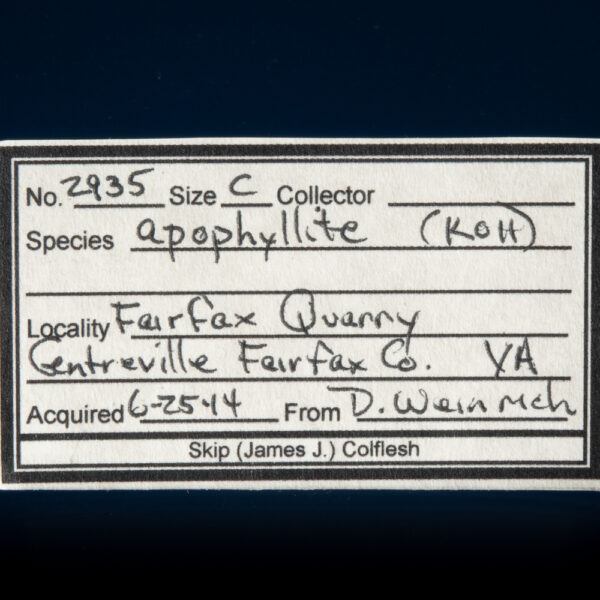 No. 2935 Size C Collector
Species apophyllite (KOH)
Locality Fairfax Quarry
Centreville Fairfax Co. VA
Acquired 6-25-14 From D. Weinrich
Skip (James J.) Colflesh